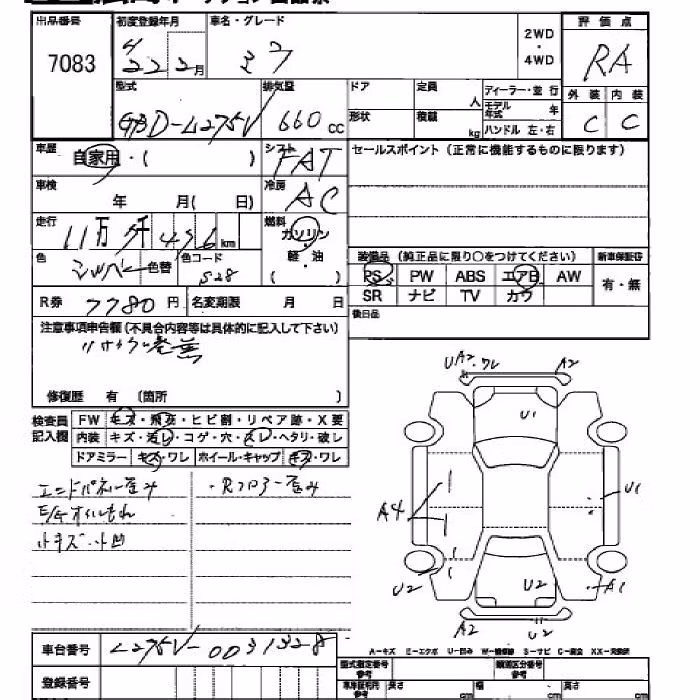 出品番号 初度登録年月 車名・グレード 2WD・4WD 評価点
7083 22 2月 ミラ RA
型式 排気量 ドア 定員 人 ディーラー・並行 外装 内装
GBD-L275V 660cc 形状 積載 kg モデル年式 年 ハンドル 左・右 C C
車歴 自家用・( ) シフト FAT セールスポイント(正常に機能するものに限ります)
車検 年 月( 日) 冷房 AC
走行 11万 千 496 km 燃料 ガソリン
軽・油
( )
色 シルバー 色替 色コード S28
装備品(純正品に限り○をつけてください) 新車保証書
PS PW ABS エアB AW 有・無
SR ナビ TV カワ
R券 7780円 名変期限 月 日 後日品
注意事項申告欄(不具合内容等は具体的に記入して下さい)
リサイクル券無
修復歴 有 (箇所 )
検査員記入欄 FW キズ・飛石・ヒビ割・リペア跡・X要
内装 キズ・汚レ・コゲ・穴・スレ・ヘタリ・破レ
ドアミラー キズ・ワレ ホイール・キャップ キズ・ワレ
エンドパネル歪み ・Rフロアー歪み
E/Gオイルもれ
小キズ・小凹
UA2・ワレ A2
U1
A4 U1
U2 U2 A1
A2 U2
A-キズ E-エクボ U-凹み W-補修跡 S-サビ C-腐食 XX-交換済
車台番号 L275V-0031328
型式指定番号 参考 類別区分番号 参考
登録番号 車庫証明用 参考 長さ cm 幅 cm 高さ cm